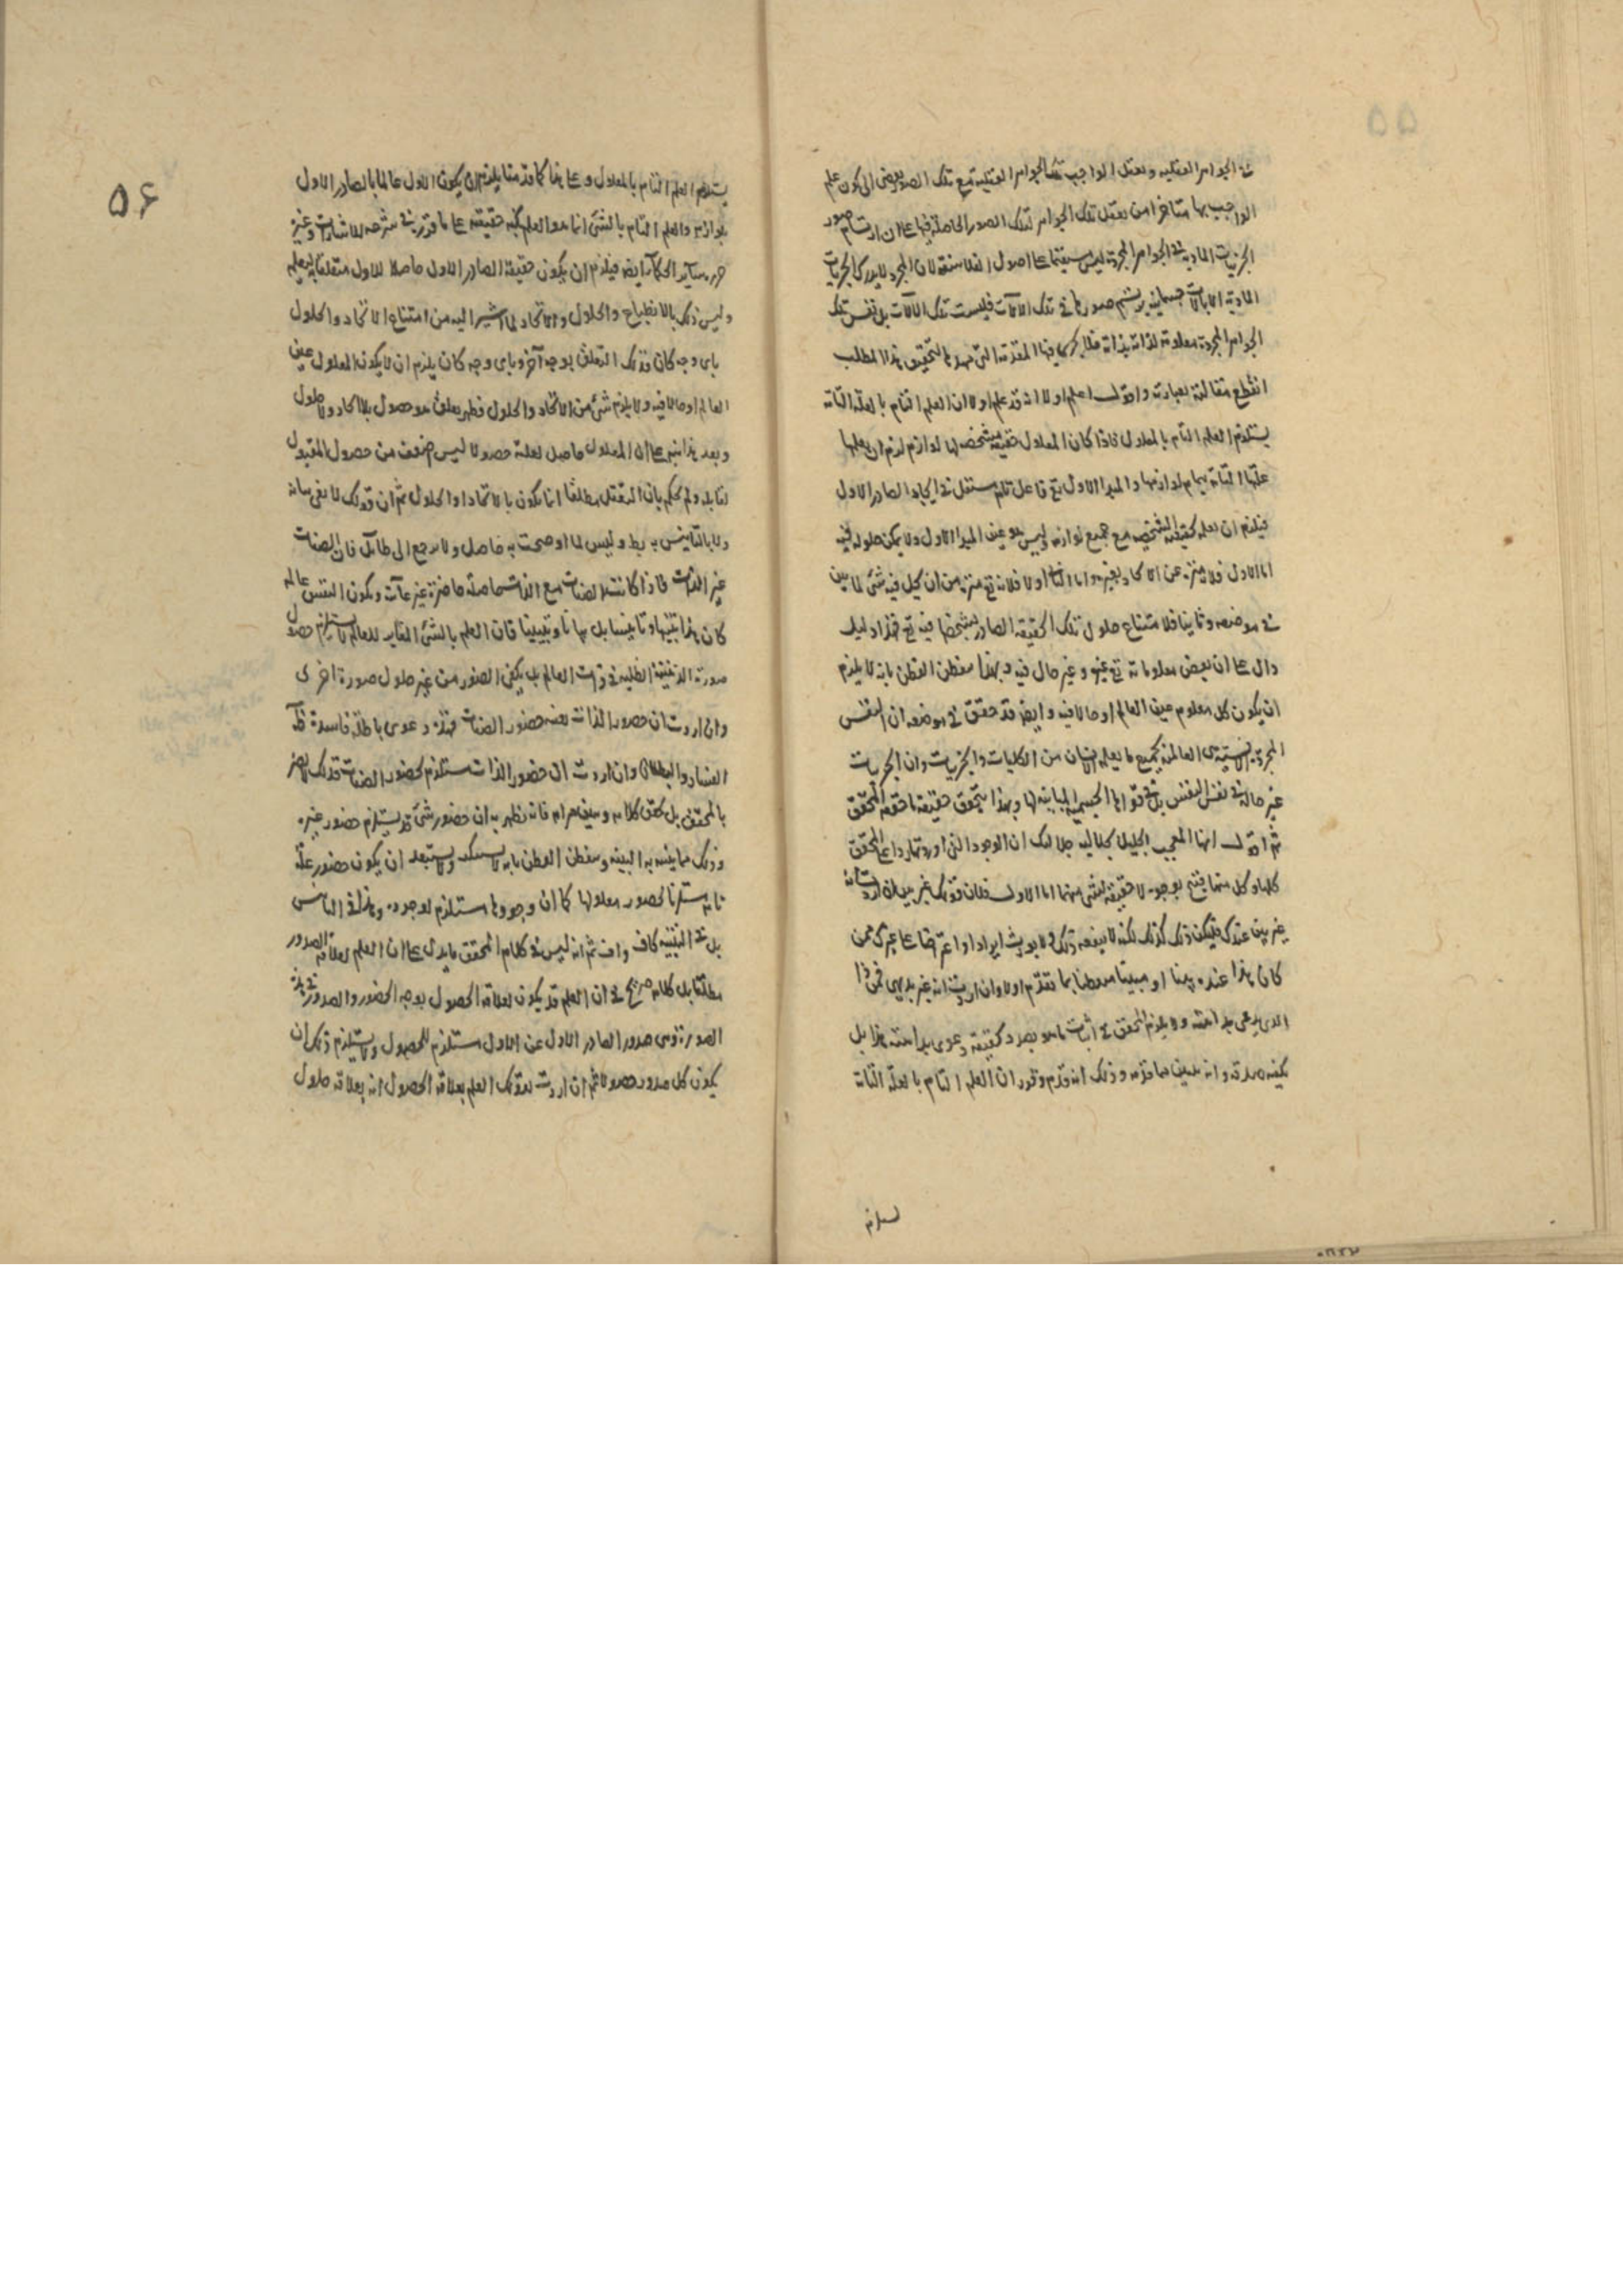 في الجواهر العقلية وتعقل الواجب تلك الجواهر العقلية مع تلك الصور يفضي الى كون علم
الواجب بها متاخرا من تعقل تلك الجواهر لتلك الصور الحاصلة فيها على ان ارتسام صور
الجزئيات المادية في الجواهر المجردة ليس مستقيما على اصول الفلاسفة لان المجرد لا يدرك الجزئيات
المادية الا بآلات جسمانية يرتسم صورها في تلك الآلات فليست تلك الآلات بل نفس تلك
الجواهر المجردة معلولة لذاته بذاته فلا يجري فيها المقدمة التي مهدها لتحقيق هذا المطلب
انقطع مقالته بعبارته واقول اعلم اولا انه قد علم اولا ان العلم التام بالعلة التامة
يستلزم العلم التام بالمعلول فاذا كان المعلول حقيقة مشخصة لها لوازم لزم ان يعلمها
علتها التامة بتمام لوازمها والمبدا الاول تع فاعل تام مستقل في ايجاد الصادر الاول
فيلزم ان يعلم كحقيقته الشخصية مع جميع لوازمه وليس هو عين المبدا الاول ولا يمكن حلوله فيه
اما الاول فلانه منزه عن الاتحاد بغيره واما الثاني اولا فلانه تع منزه من ان يحل فيه شئ لما بين
في موضعه وثانيا فلامتناع حلول تلك الحقيقة الصادرة بشخصها فيه تع فهذا دليل
دال على ان بعض معلوماته تع غيره وغير حال فيه وبهذا يتفطن الفطن بانه لا يلزم
ان يكون كل معلوم عين العالم او حالا فيه وايضا قد حقق في موضعه ان النفس
المجردة الانسانية هي العالمة بجميع ما يعلمه الانسان من الكليات والجزئيات وان الجزئيات
غير حالة في نفس النفس بل في قواها الجسمية المباينة لها وبهذا يتحقق حقيقة ما حققه المحقق
ثم اقول ايها المعجب الجليل بجلاليه جلالك ان الوجوه التي اوردتها رداعا على المحقق
كلها وكل منها يقتنع بوجوه لا حقيقة لشئ منهما اما الاول فلان قولك غير بين ان اردت انه
غير بين عندك فليكن ذلك كذلك لكنه لا ينفعه ذلك ولا يورث ايرادا واعتراضا على غيرك ممن
كان هذا عنده بينا او مبينا متفطنا بما تقدم اولا وان اردت انه غير بديهي فمن ذا
الذي يدعي بداهته ولا يلزم المحقق في اثبات ما هو بصدد تحقيقه دعوى بداهته هذا بل
يكفيه صدقه وانه تبين مما قدمه وذلك انه قدم وقرر ان العلم التام بالعلة التامة
يستلزم
۵۶
يستلزم العلم التام بالمعلول وعلى هذا كما قدمنا يلزم ان يكون الاول عالما بالصادر الاول
بلوازمه والعلم التام بالشئ انما هو العلم بكنه حقيقته على ما قرره في شرحه للاشارات وغيره
حرره سائر الحكماء ايضا فيلزم ان يكون حقيقة الصادر الاول حاصلا للاول متعلقا به علمه
وليس ذلك بالانطباع والحلول والاتحاد لما اشير اليه من امتناع الاتحاد والحلول
باي وجه كان فذلك التعلق بوجه آخر وباي وجه كان يلزم ان لا يكون المعلول عين
العالم او حالا فيه ولا يلزم شئ من الاتحاد والحلول فظهر تعلق هو حصول بلا اتحاد ولا حلول
وبعد هذا نبه على ان المعلول حاصل لعلته حصولا ليس اضعف من حصول المقبول
لقابله ولم يحكم بان التعقل مطلقا انما يكون بالاتحاد او الحلول ثم ان قولك لا يفي ببيانه
ولا بالتانيس به يط وليس لما اوضحت به حاصل ولا يرجع الى طائل فان الصفات
غير الذات فاذا كانت الصفات مع الذات حاصلة حاضرة غير غائبة ويكون النفس عالمة
كان هذا تنبيها وتانيسا بل بيانا وتبيينا فان العلم بالشئ المغاير للعالم لا يستلزم حصول
صورته الذهنية الظلية في ذات العالم بل يكفي الحضور من غير حلول صورة اخرى
وان اردت ان حضور الذات نفسه حضور الصفات فهذه دعوى باطلة فاسدة ظاهرة
الفساد والبطلان وان اردت ان حضور الذات مستلزم لحضور الصفات فذلك لا يضر
بالمحقق بل يحقق كلامه ويبين مرامه فانه يظهر به ان حضور شئ قد يستلزم حضور غيره
وذلك مما ينبه به النبيه ويتفطن الفطن بانه لا يستنكر ولا يستبعد ان يكون حضور علة
تامة مستلزما لحضور معلولها كما ان وجودها مستلزم لوجوده وهذا في التانيس
بل في التنبيه كاف واف ثم انه ليس في كلام المحقق ما يدل على ان العلم لعلاقة الصدور
مطلقا بل كلامه صريح في ان العلم قد يكون لعلاقة الحصول بوجه الحضور والصدور في هذه
الصورة وهي صدور الصادر الاول عن الاول مستلزم للحصول ولا يستلزم ذلك ان
يكون كل صدور حصولا ثم ان اردت بقولك العلم بعلاقة الحصول انه بعلاقة حلول